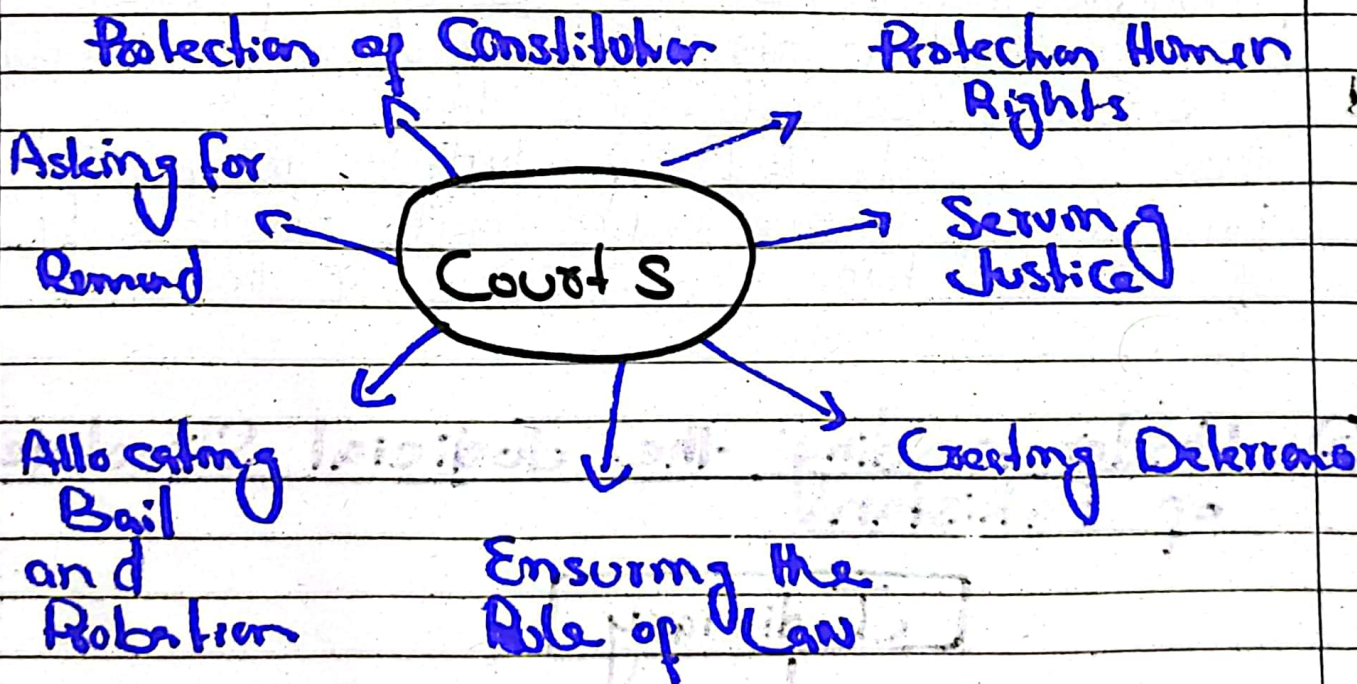 Protection of Constitution
Protection Human
Rights
Asking for
Remand
Courts
Serving
Justice
Allocating
Bail
and
Probation
Ensuring the
Rule of Law
Creating Deterrence